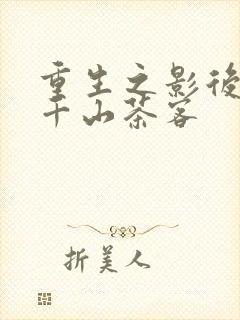 重生之影後
千山茶客
折美人